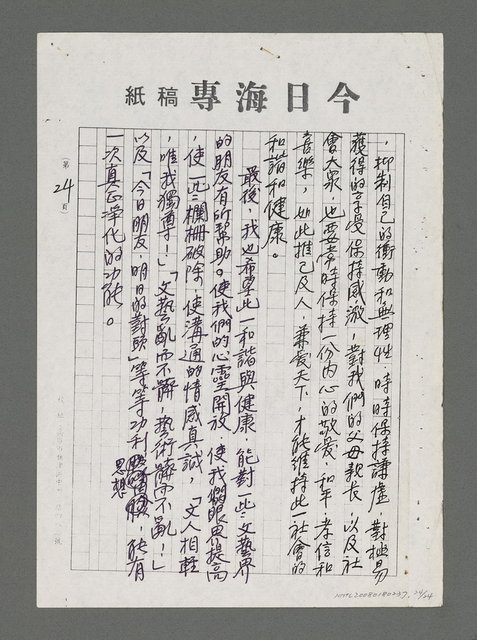 今日海專稿紙
第24頁
，抑制自己的衝動和無理性，時時保持謙虛，對極易
獲得的享受保持感激，對我們的父母親長，以及社
會大眾，也要常時保持一份內心的敬愛，和平孝信和
喜樂，如此推己及人，兼愛天下，才能維持此一社會的
和諧和健康。
最後，我也希望此一和諧與健康，能對一些文藝界
的朋友有所幫助。使我們的心靈開放，使我們眼界提高
，使一些欄柵破除，使溝通的情感真誠，「文人相輕
，唯我獨尊！」「文藝亂而不辭，藝術辭而不亂！」
以及「今日朋友，明日的對頭」等等功利思想，能有
一次真正淨化的功能。
NMTL20080180237, 24/24